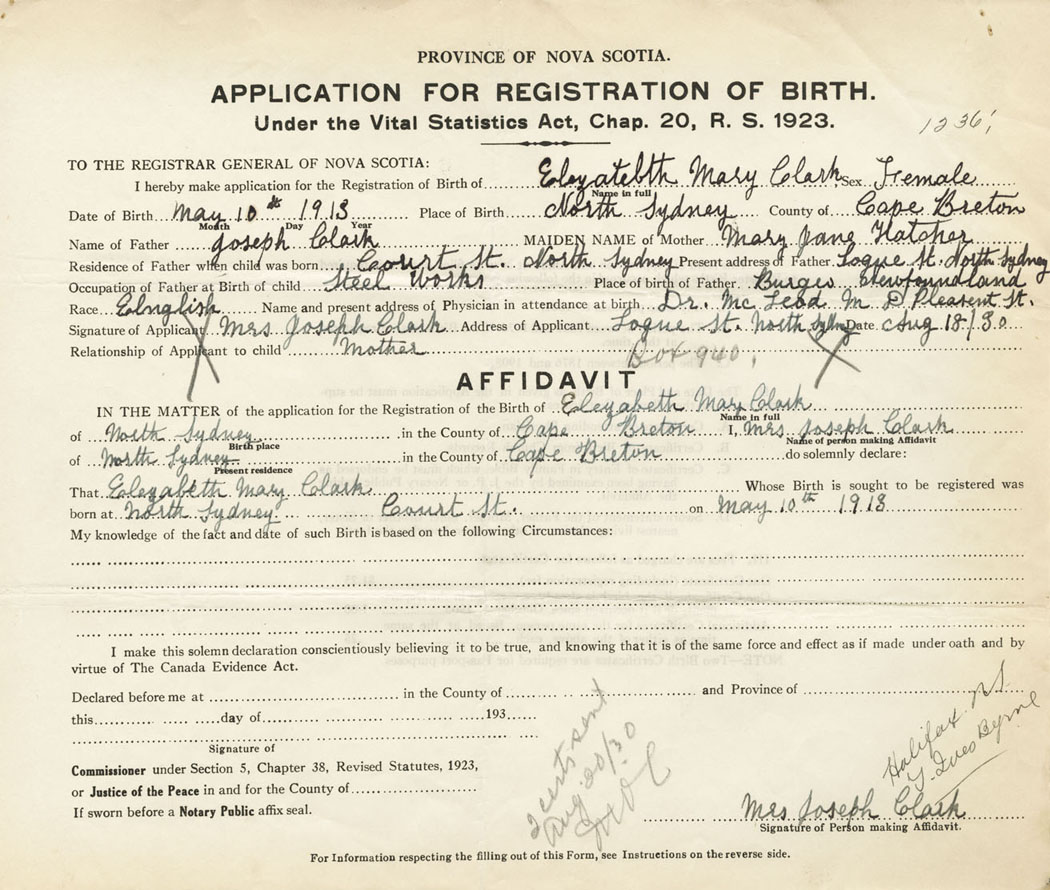 PROVINCE OF NOVA SCOTIA.
APPLICATION FOR REGISTRATION OF BIRTH.
Under the Vital Statistics Act, Chap. 20, R. S. 1923.
1236
TO THE REGISTRAR GENERAL OF NOVA SCOTIA:
I hereby make application for the Registration of Birth of Elezatebth Mary Clark Sex Female
Name in full
Date of Birth May 10th 1913 Place of Birth North Sydney County of Cape Breton
Month Day Year
Name of Father Joseph Clark MAIDEN NAME of Mother Mary Jane Hatcher
Residence of Father when child was born Court St. North Sydney Present address of Father Logue St. North Sydney
Occupation of Father at Birth of child Steel Works Place of birth of Father Burgeo Newfoundland
Race English Name and present address of Physician in attendance at birth Dr. Mc Leod M D Pleasent St.
Signature of Applicant Mrs Joseph Clark Address of Applicant Logue St. North Sydney Date Aug 18/30
Relationship of Applicant to child Mother Box 940
AFFIDAVIT
IN THE MATTER of the application for the Registration of the Birth of Elezabeth Mary Clark
Name in full
of North Sydney in the County of Cape Breton I, Mrs Joseph Clark
Birth place Name of person making Affidavit
of North Sydney in the County of Cape Breton do solemnly declare:
Present residence
That Elezabeth Mary Clark Whose Birth is sought to be registered was
born at North Sydney Court St. on May 10th 1913
My knowledge of the fact and date of such Birth is based on the following Circumstances:
I make this solemn declaration conscientiously believing it to be true, and knowing that it is of the same force and effect as if made under oath and by
virtue of The Canada Evidence Act.
Declared before me at in the County of and Province of
this day of 193
Signature of
Commissioner under Section 5, Chapter 38, Revised Statutes, 1923,
or Justice of the Peace in and for the County of
If sworn before a Notary Public affix seal.
2 certs sent
Aug. 20/30
Halifax NS
Y. Ives Byrne
Mrs Joseph Clark
Signature of Person making Affidavit.
For Information respecting the filling out of this Form, see Instructions on the reverse side.